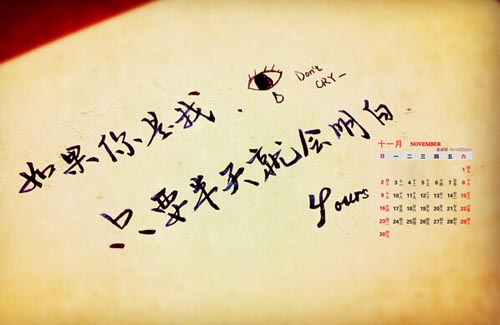 如果你是我.
Don't
CRY_
只要半天就会明白
Yours
十一月 NOVEMBER
日 一 二 三 四 五 六
1
2 3 4 5 6 7 8
9 10 11 12 13 14 15
16 17 18 19 20 21 22
23 24 25 26 27 28 29
30